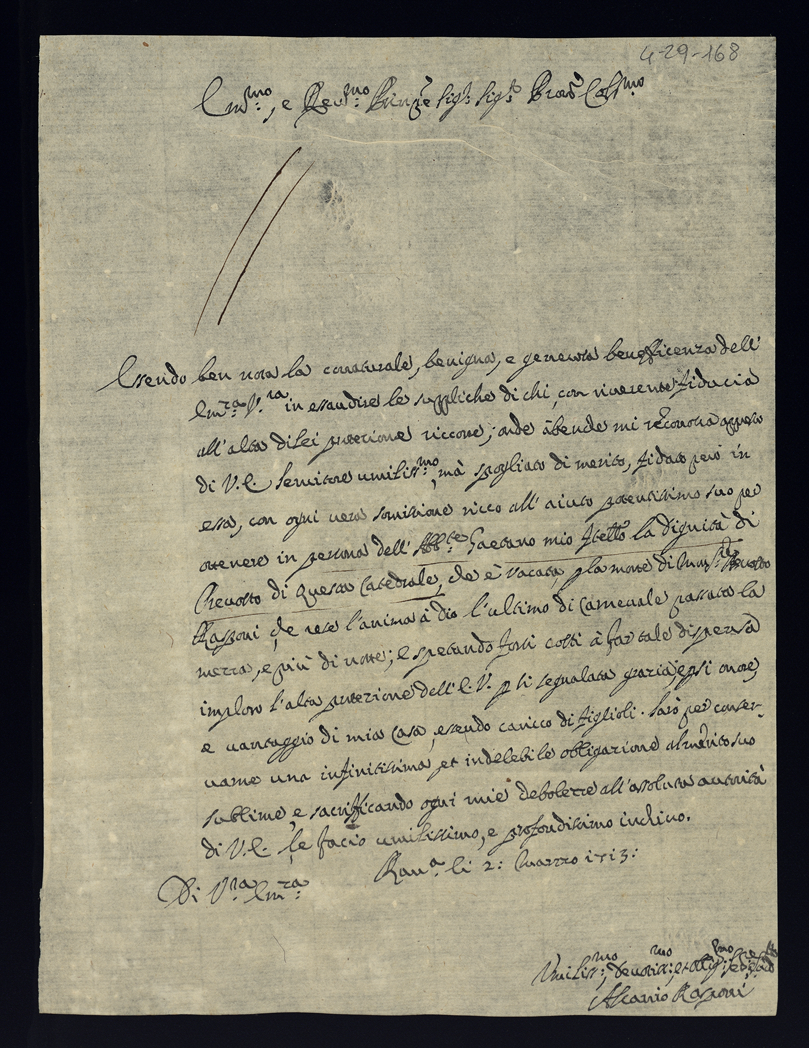 4-29-168
Em.mo, e Rev.mo Prin.pe Sig.r Sig.r Pron Col.mo
Essendo ben nota la connaturale, benigna, e generosa benefficenza dell'
Em.za V.ra in essaudire le suppliche di chi, con riverente fiducia
all'alta di lei protezione riccorre; onde abenche mi riconosca appresso
di V.E. Servitore umiliss.mo, mà spogliato di merito, fidato però in
essa, con ogni vera somissione ricco all'aiuto potentissimo suo per
ottenere in persona dell'Abb.te Gaetano mio fratello la Dignità di
Prevosto di questa Cattedrale, che è vacata p la morte di Mons.r Prevosto
Rasponi, che rese l'anima à Dio l'ultimo di Carnevale passato la
mezza, e più di notte; e sperando forti costì à far tale dispensa
imploro l'alta protezione dell'E.V. p sì segnalata grazia, e p si onore,
e vantaggio di mia Casa, essendo caricco di figlioli. Sarò per conser-
varne una infinitissima, et indelebile obligazione al merito suo
sublime, e sacrifficando ogni mie debolezze all'assoluta autorità
di V.E. le faccio umilissimo, e profondissimo inchino.
Rav.a li 2: Marzo 1713:
Di V.ra Em.za
Umiliss.mo, Devotiss.mo, et Oblig.mo
Ascanio Rasponi